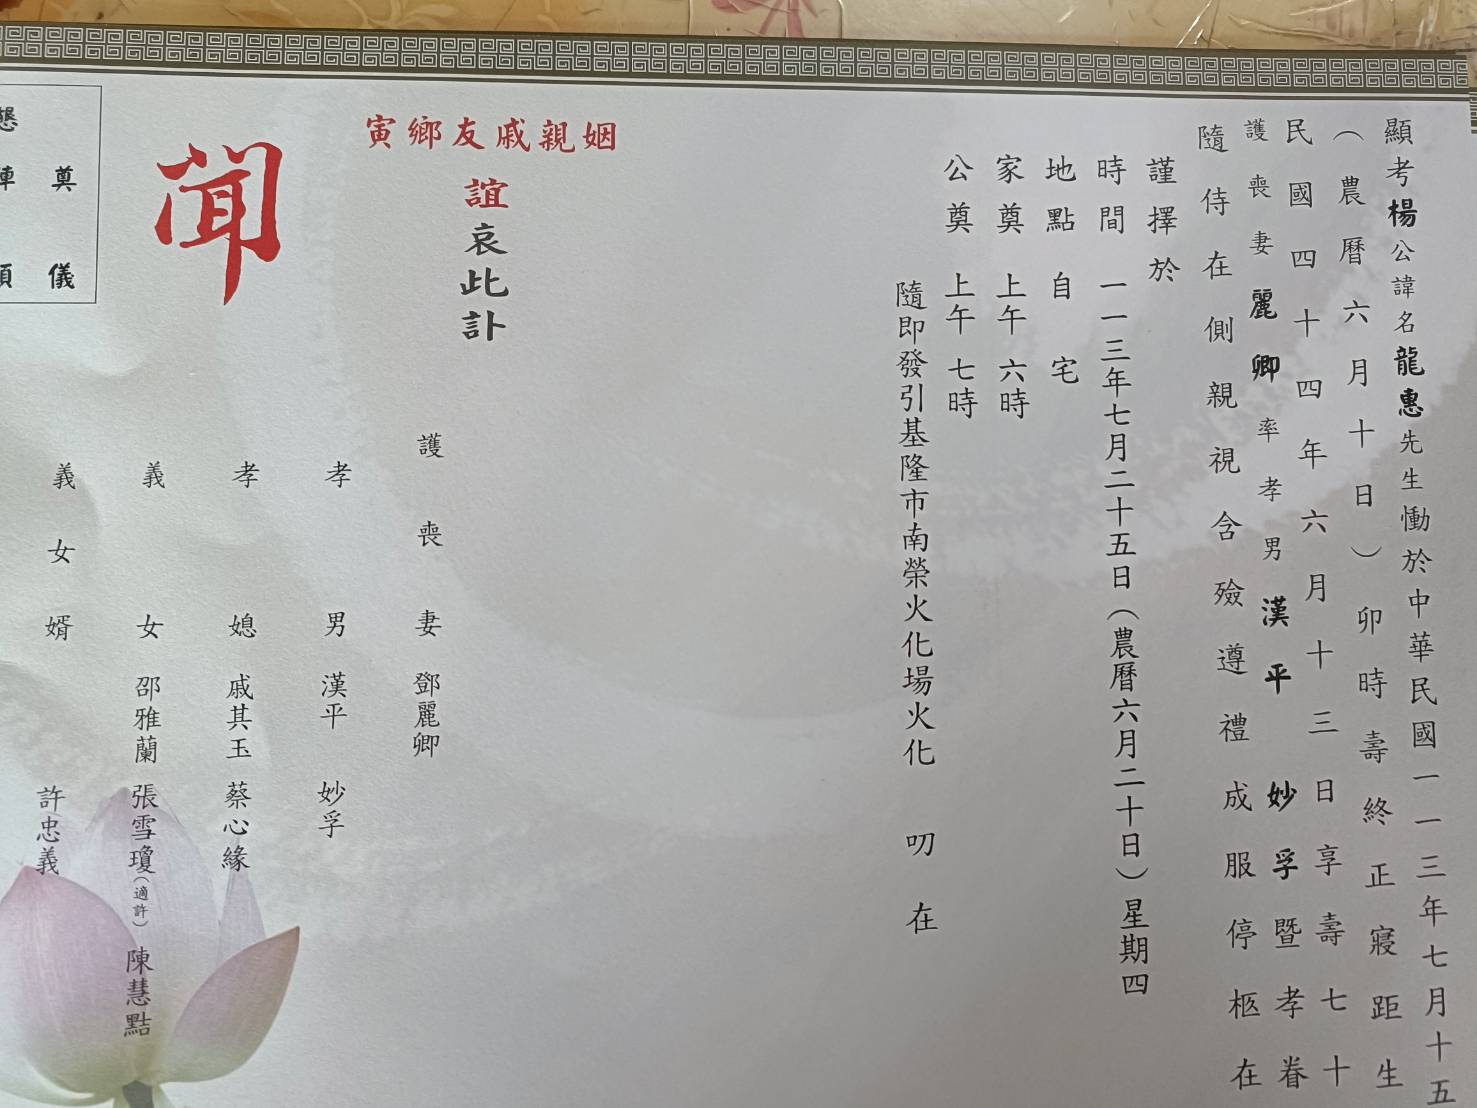 顯考楊公諱名龍惠先生慟於中華民國一一三年七月十五
（農曆六月十日）卯時壽終正寢距生
民國四十四年六月十三日享壽七十
護喪妻麗卿率孝男漢平妙孚暨孝眷
隨侍在側親視含殮遵禮成服停柩在
謹擇於
時間一一三年七月二十五日（農曆六月二十日）星期四
地點自宅
家奠上午六時
公奠上午七時
隨即發引基隆市南榮火化場火化 叨在
姻親戚友鄉寅
誼哀此訃
聞
護喪妻鄧麗卿
孝男漢平 妙孚
孝媳戚其玉 蔡心緣
義女邵雅蘭 張雪瓊（適許） 陳慧點
義女婿 許忠義
奠儀
懇